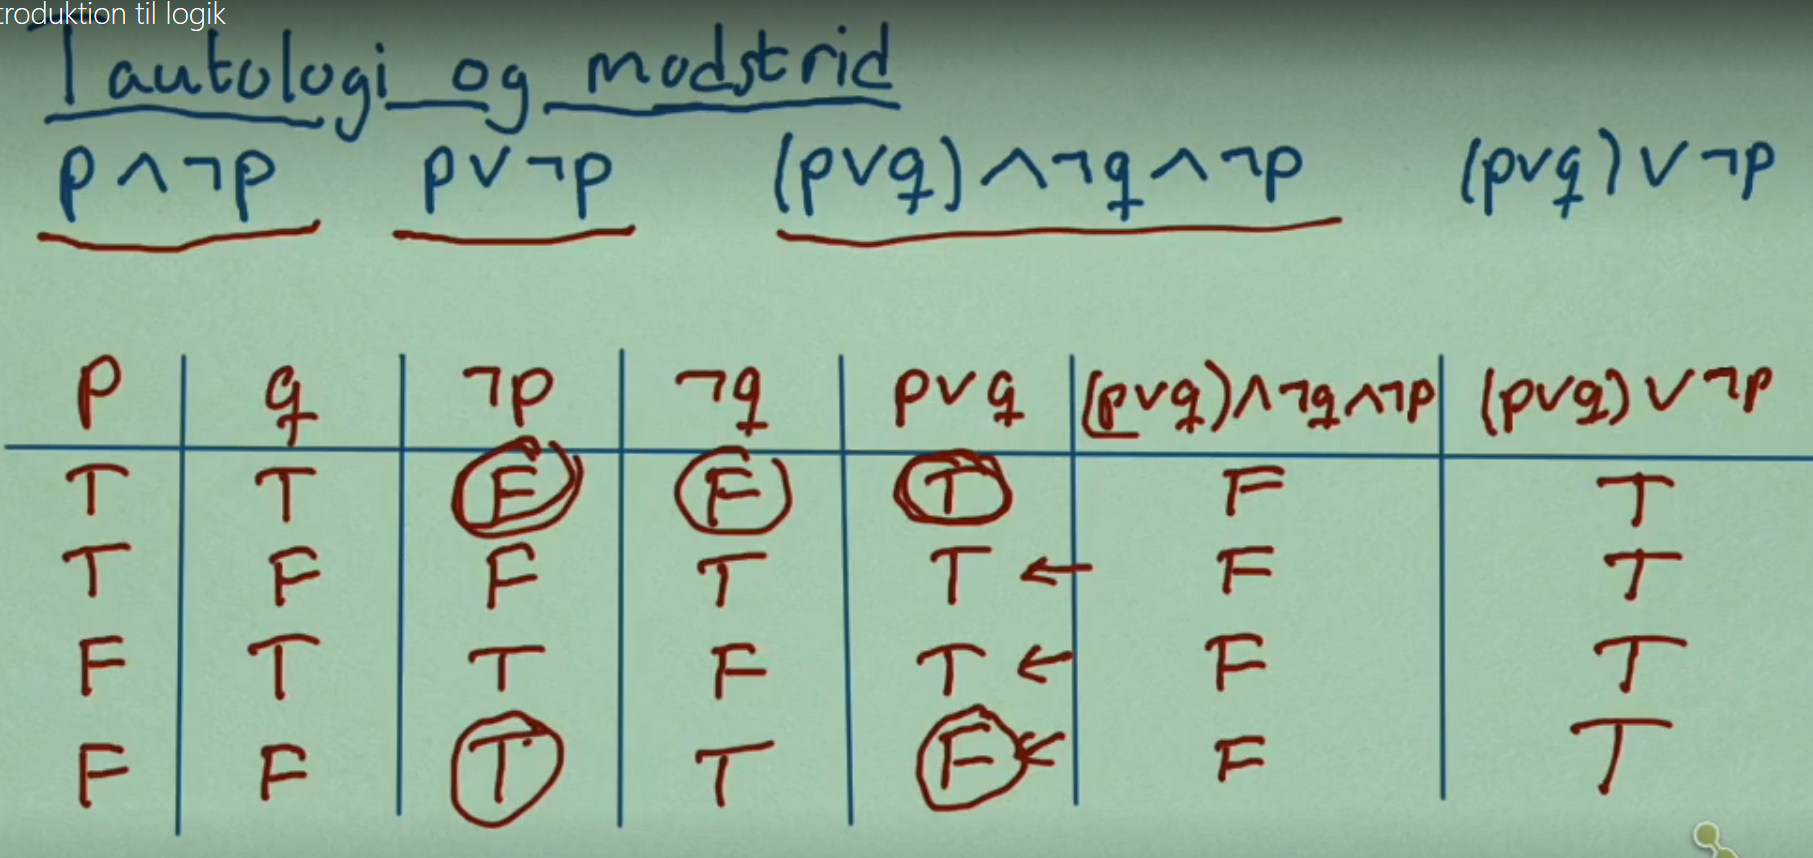 troduktion til logik
Tautologi og modstrid
p ∧ ¬p p ∨ ¬p (p∨q) ∧ ¬q ∧ ¬p (p∨q) ∨ ¬p
p q ¬p ¬q p∨q (p∨q)∧¬q∧¬p (p∨q) ∨ ¬p
T T F F T F T
T F F T T ← F T
F T T F T ← F T
F F T T F ← F T